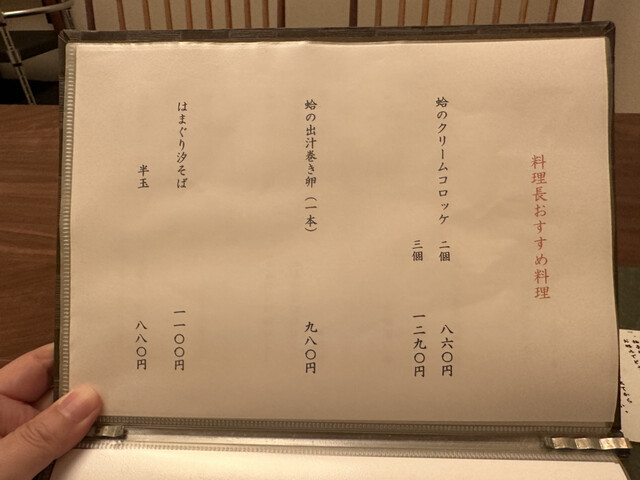 料理長おすすめ料理
蛤のクリームコロッケ 二個 八六〇円
三個 一二九〇円
蛤の出汁巻き卵（一本） 九八〇円
はまぐり汐そば 一一〇〇円
半玉 八八〇円